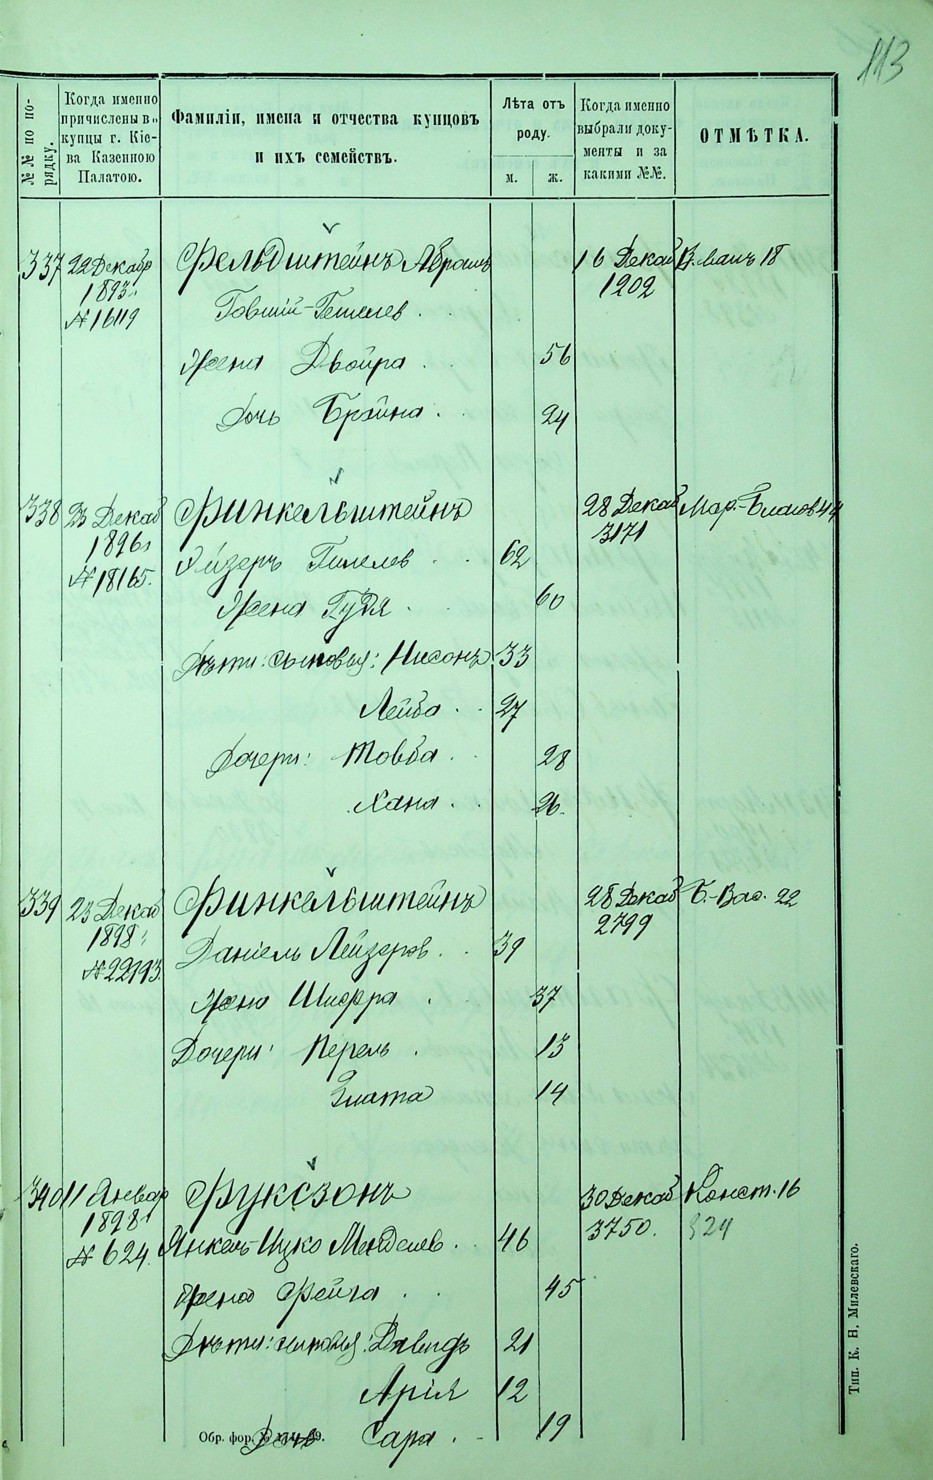 113
№№ по порядку.
Когда именно причислены въ купцы г. Кіева Казенною Палатою.
Фамиліи, имена и отчества купцовъ и ихъ семействъ.
Лѣта отъ роду.
м. ж.
Когда именно выбрали документы и за какими №№.
ОТМѢТКА.
337 22 Декабр Фельдштейнъ Абрамъ 16 Декаб
1893 1202
№ 16119
Жена Двойра 56
Дочь Брэйна 24
338 23 Декаб Финкельштейнъ 28 Декаб Мар.-Благов 44
1896 3171
№ 18165. Лейзеръ Гилелев 62
Жена Гудя 60
Дѣти: сыновья: Нисонъ 33
Лейба 27
Дочери: Товба 28
Хана 26.
339 23 Декаб Финкельштейнъ 28 Декаб Б.-Вас. 22
1898 2799
Даніель Лейзеров 39
Жена Шифра 37
Дочери: Перель 13
Злата 14
340 11 Январ Фуксзонъ 30 Декаб Конст. 16
1898 3750. 324
№ 624. Янкель-Ицко Менделев 46
Жена Фейга 45
Дѣти: сыновья: Давидъ 21
Арія 12
Дочь Сара 19
Обр. фор.
Тип. К. Н. Милевскаго.